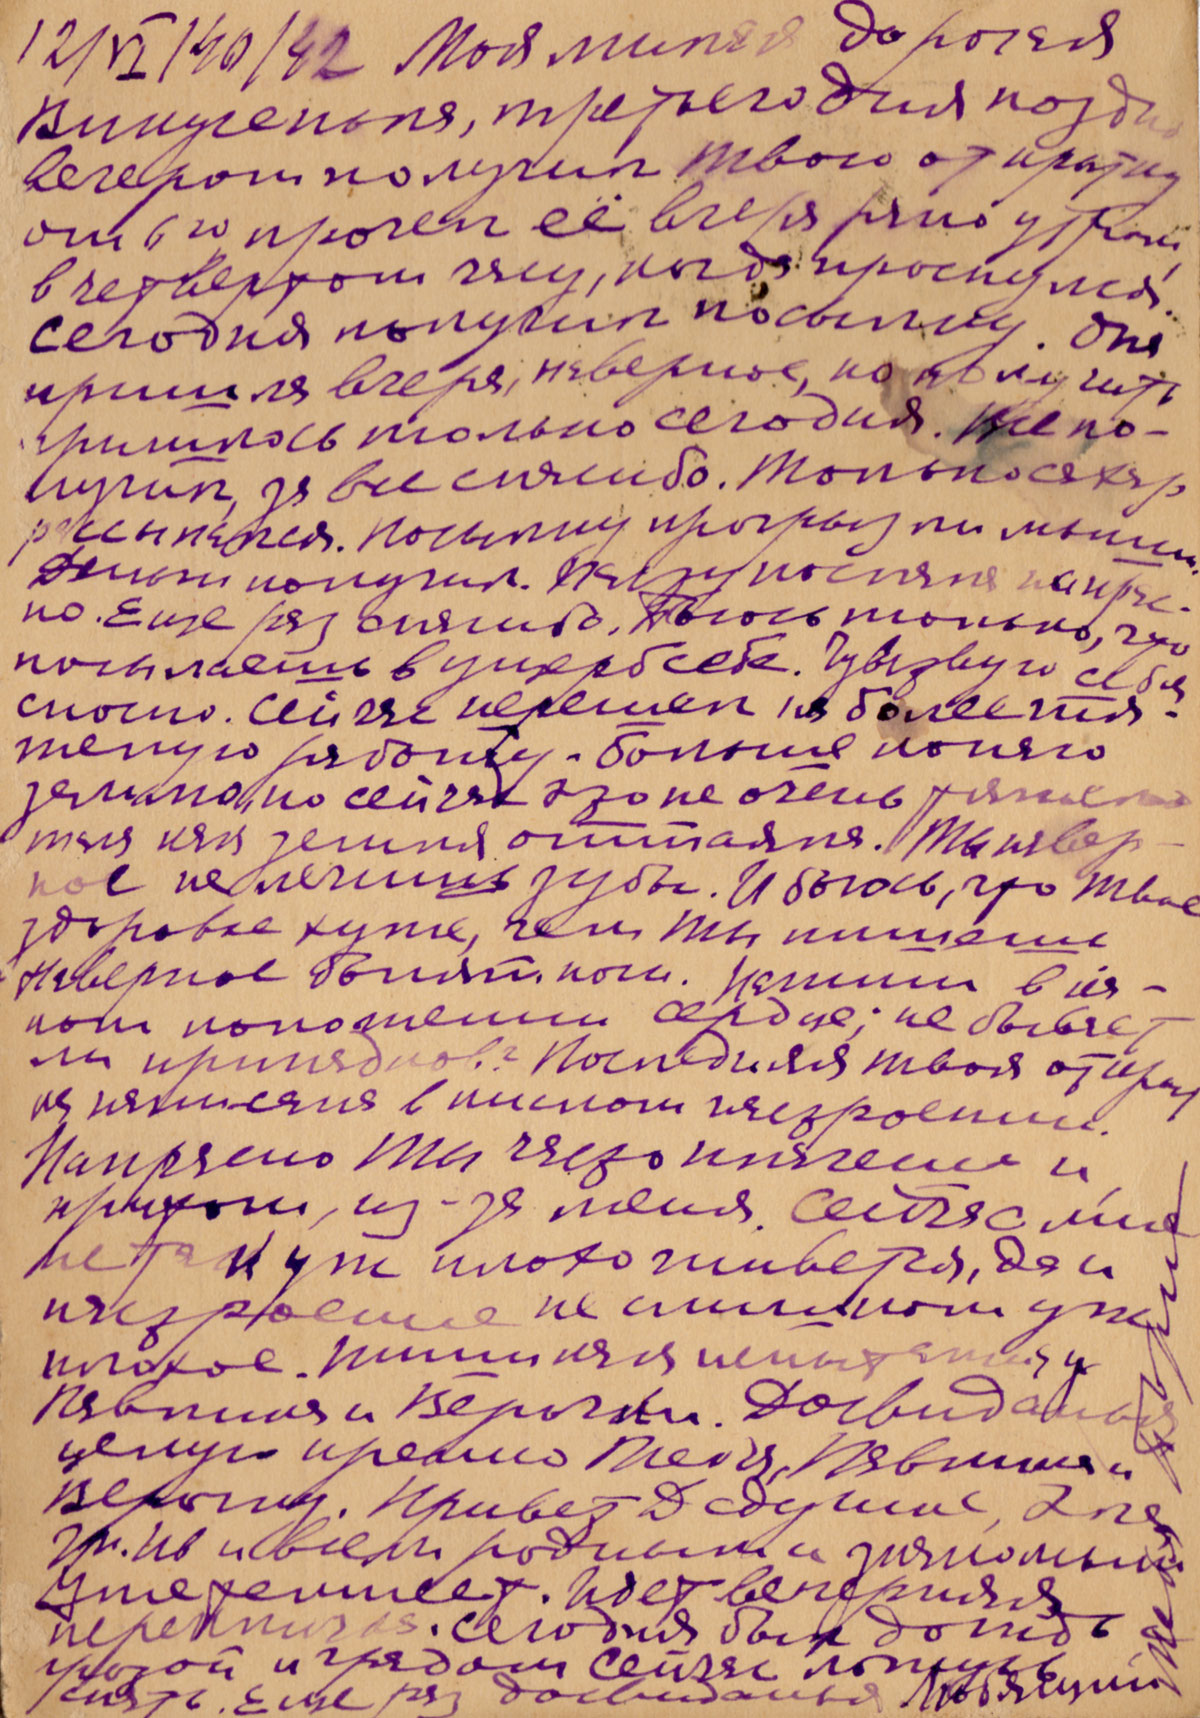 12/VI/40/42 Моя милая дорогая
Винусенька, третьего дня поздно
вечером получил твою открытку
прочел её вчера рано утром,
в четвертом часу, когда проснулся.
Сегодня получил посылку. Она
пришла вчера, наверное, но получить
пришлось только сегодня. Все по-
лучил, за все спасибо. Только сахар
рассыпался. Посылку прогрызли мыши.
Деньги получил. послала напрас-
но. Еще раз спасибо. Боюсь только, что
посылаешь в ущерб себе. Чувствую себя
сносно. Сейчас перешел на более тя-
желую работу. Больше копаю
землю, но сейчас это не очень тяжело
так как земля оттаяла. Ты навер-
ное не лечишь зубы. И боюсь, что твое
здоровье хуже, чем ты пишешь
Наверное Напиши в ка-
ком положении сердце; не бывает
ли припадков? Последняя твоя открыт
ка написана в кислом настроении.
Напрасно ты часто плачешь и,
притом, из-за меня. Сейчас мне
не так уж плохо живется, да и
настроение не слишком уж
плохое. Пиши как испытания у
Павлика и Верочки. Досвиданья
целую крепко тебя, Павлика и
Верочку. Привет Дедушке,
и всем родным и знакомым
Уже темнеет. Идет вечерняя
перекличка. Сегодня был дождь
грозой и градом Сейчас ложусь
спать. Еще раз досвиданья Любящий
тебя